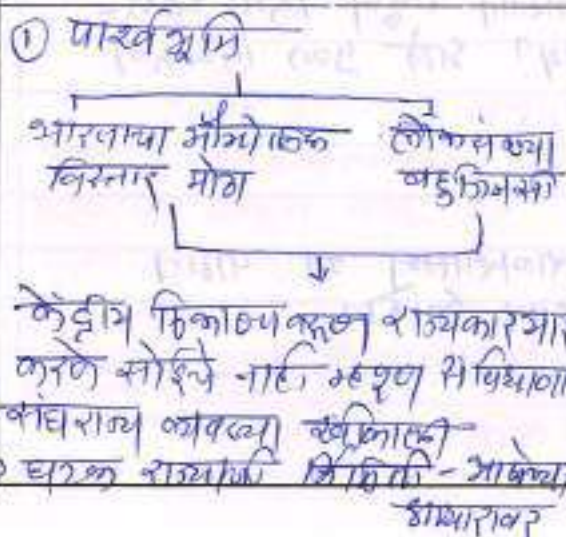 ① पार्श्वभूमी
भारताचा भौगोलिक
विस्तार मोठा
लोकसंख्या
बहुजिनसी
केंद्रीय ठिकाणावरून राज्यकारभार
करणे सोईचे नाही म्हणून संविधानात
संघराज्य व्यवस्था स्वीकारली
घटक राज्यांची निर्मिती - भाषेच्या
आधारावर